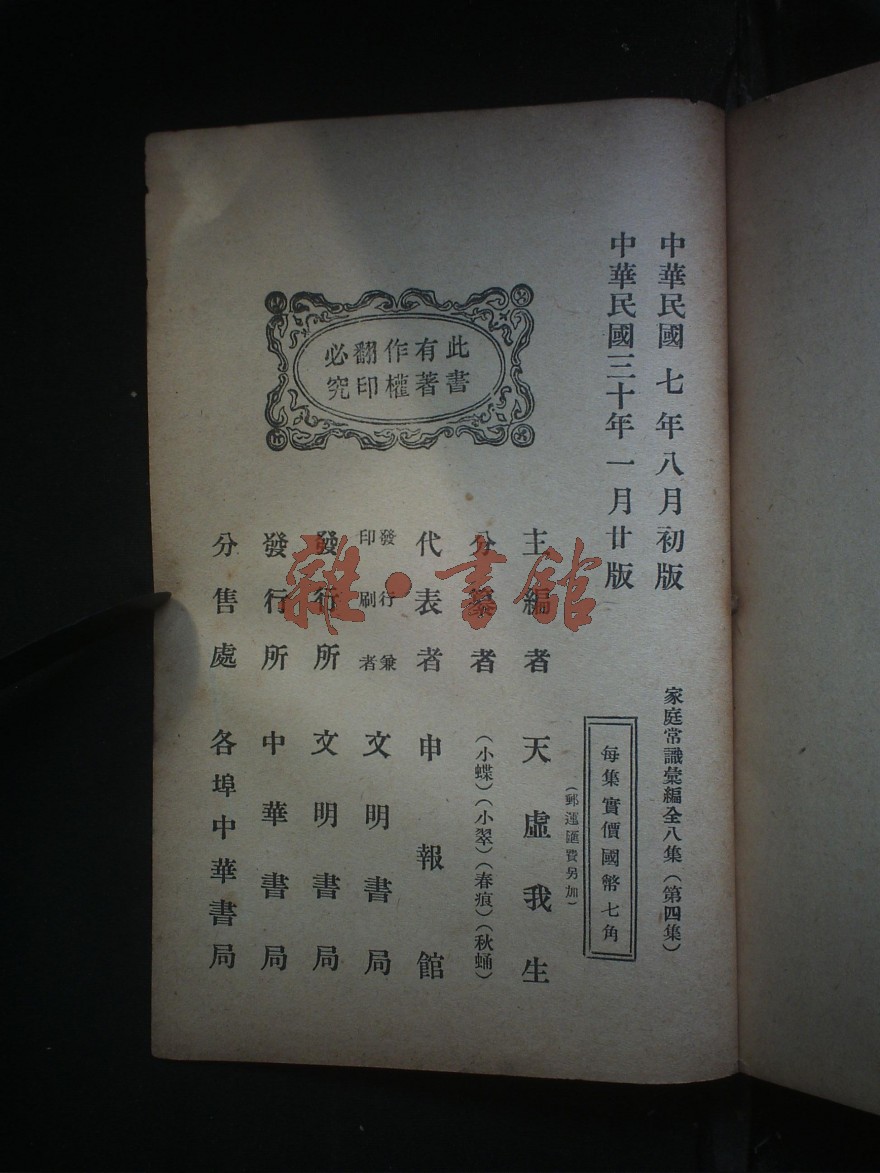 中華民國 七年八月初版
中華民國三十年一月廿版
家庭常識彙編全八集(第四集)
每集實價國幣七角
(郵運匯費另加)
此書
有著
作權
翻印
必究
主編者 天虛我生
分纂者 (小蝶)(小翠)(春痕)(秋蛹)
代表者 申報館
發行兼
印刷者 文明書局
發行所 文明書局
發行所 中華書局
分售處 各埠中華書局
雜·書館